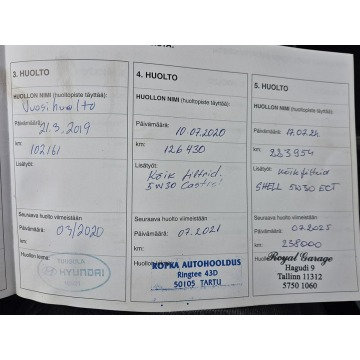 3. HUOLTO
HUOLLON NIMI (huoltopiste täyttää):
Vuosihuolto
Päivämäärä: 21.3.2019
km: 102161
Lisätyöt:
Seuraava huolto viimeistään
Päivämäärä: 03/2020
km:
Huollon leima:
HYUNDAI
4. HUOLTO
HUOLLON NIMI (huoltopiste täyttää):
Päivämäärä: 10.07.2020
km: 126430
Lisätyöt:
Kõik filtrid,
5W30 Castrol
Seuraava huolto viimeistään
Päivämäärä: 07.2021
km:
KOPKA AUTOHOOLDUS
Ringtee 43D
50105 TARTU
5. HUOLTO
HUOLLON NIMI (huoltopiste täyttää):
Päivämäärä: 17.02.24
km: 223954
Lisätyöt:
Kõik filtrid
SHELL 5W30 ECT
Seuraava huolto viimeistään
Päivämäärä: 02.2025
km: 238000
Royal Garage
Hagudi 9
Tallinn 11312
5750 1060